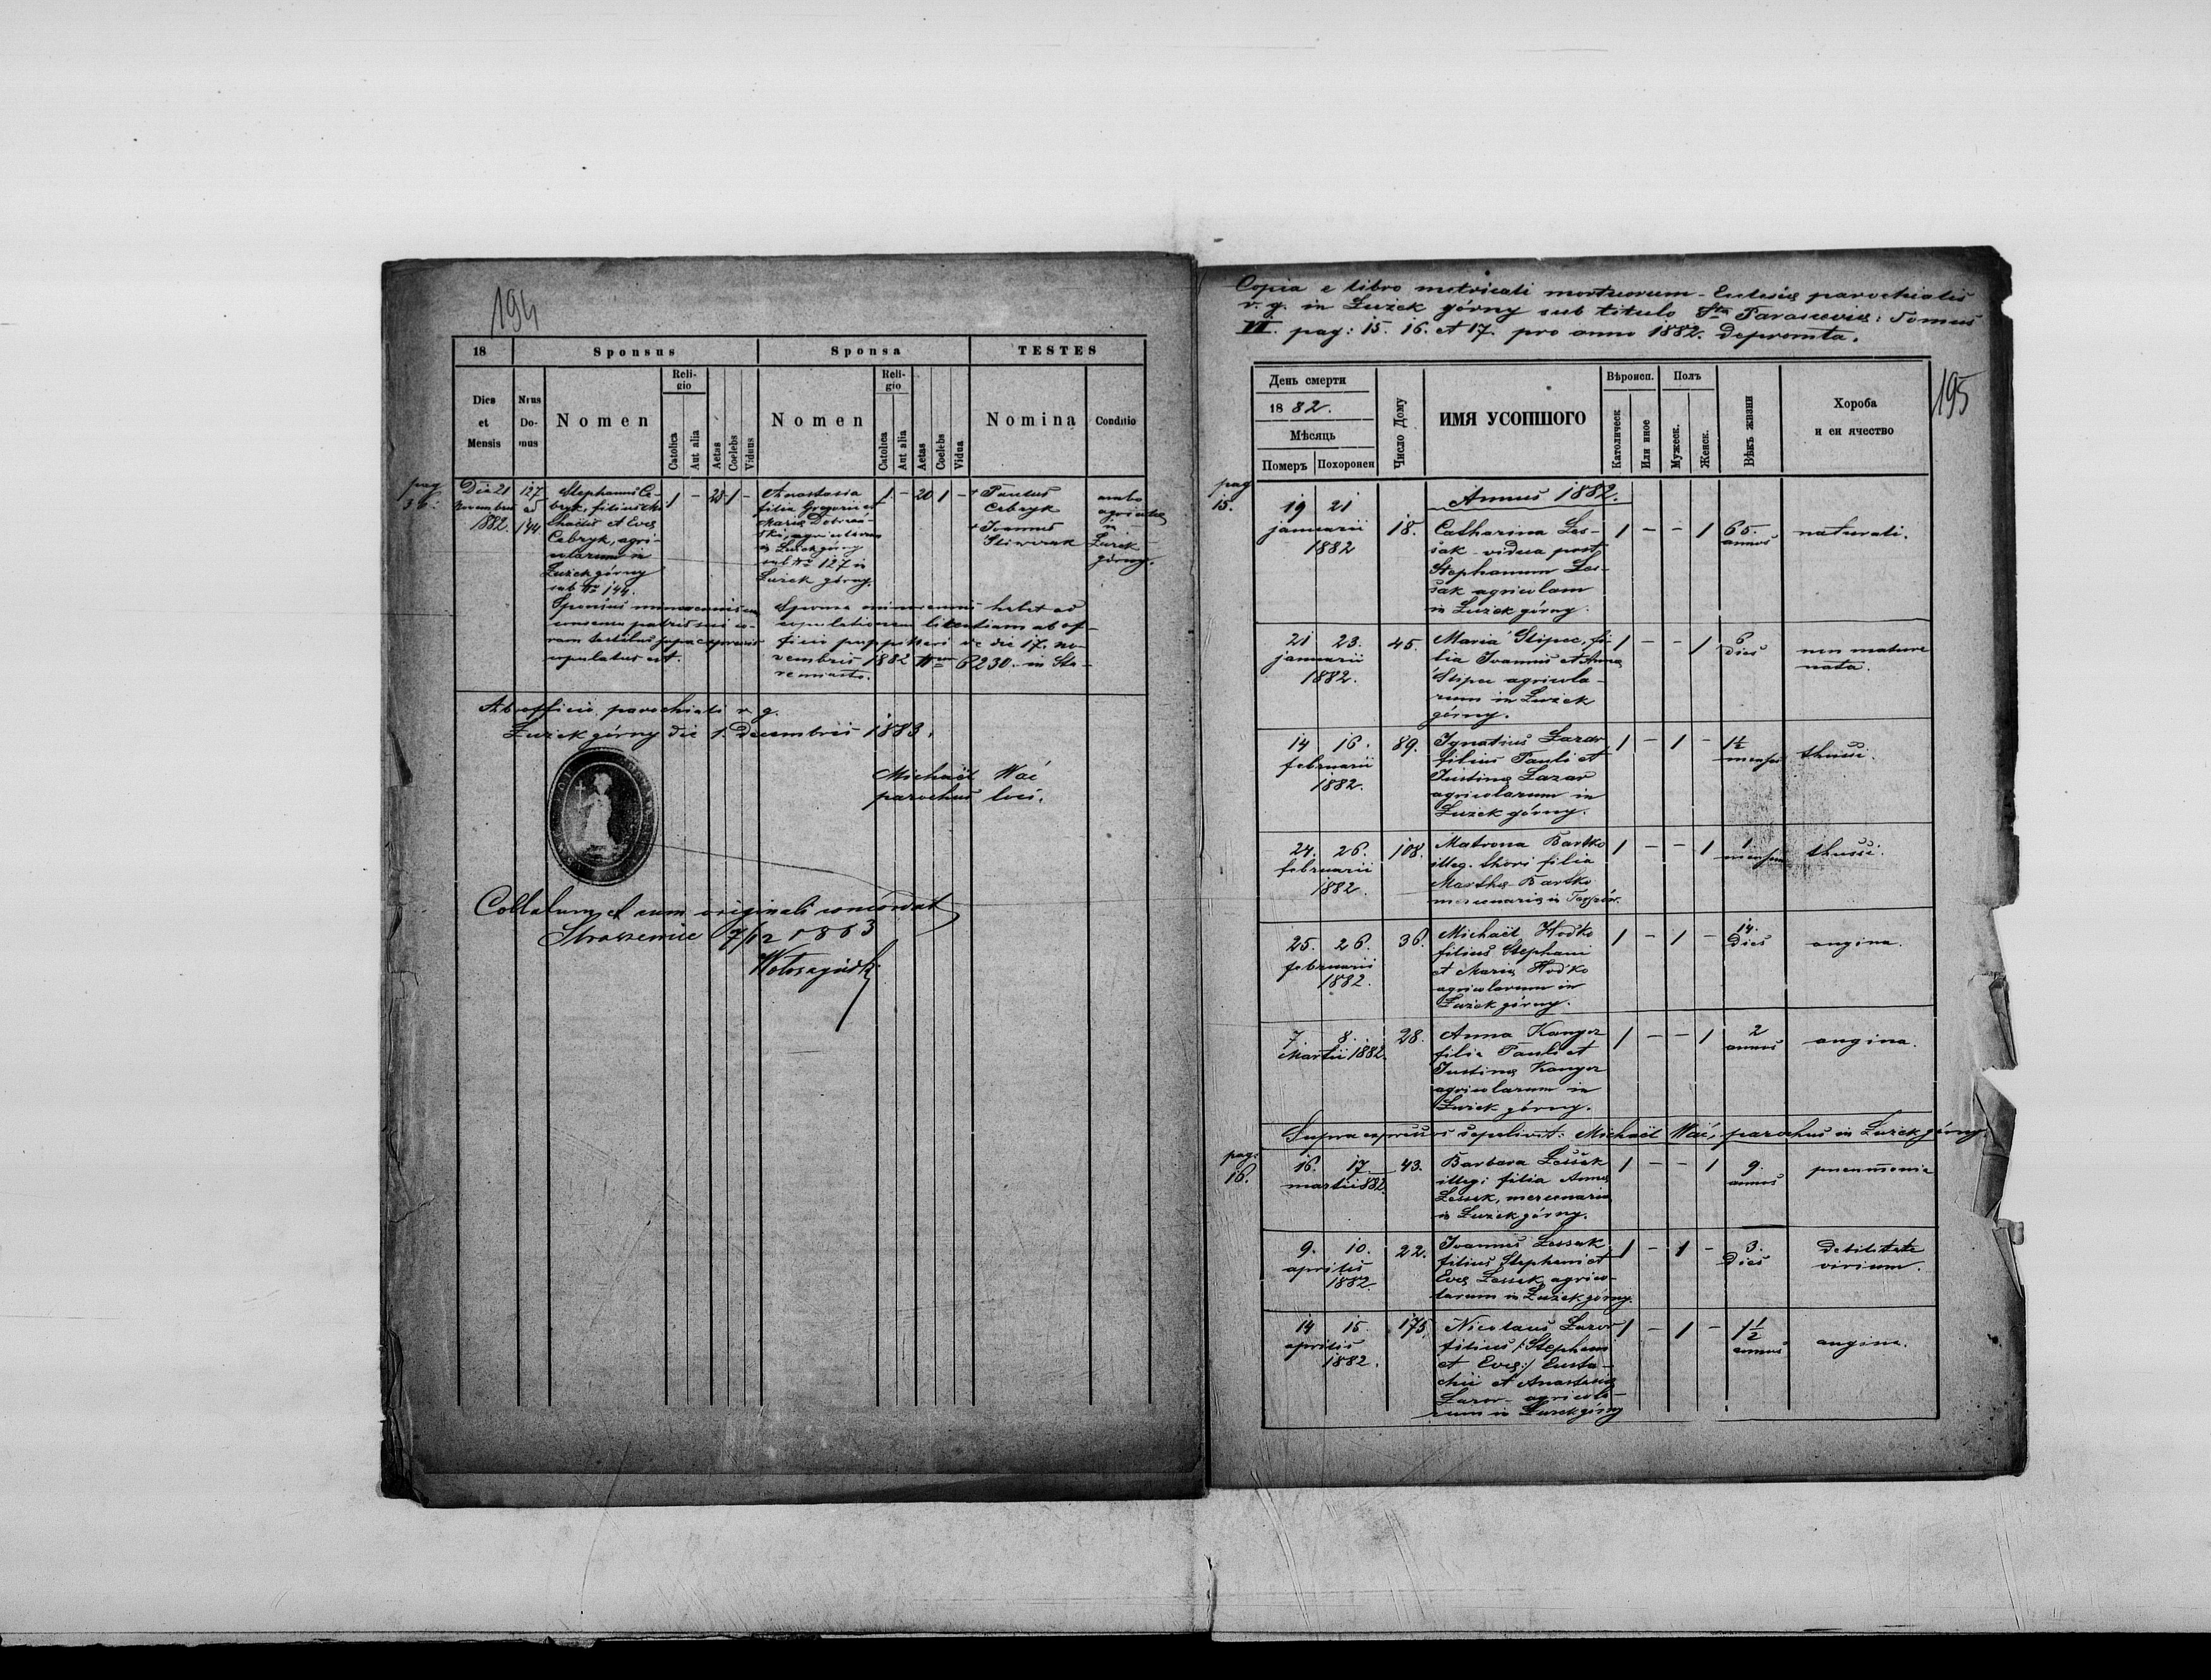 194
18
Sponsus
Sponsa
TESTES
Dies et Mensis
Nrus Domus
Nomen
Religio
Catolica
Aut alia
Aetas
Coelebs
Viduus
Nomen
Religio
Catolica
Aut alia
Aetas
Coelebs
Vidua
Nomina
Conditio
pag
36.
Die 21
Novembris
1882.
127
ad
144
Stephanus Ce-
bryk, filius Mi-
chaelis et Evæ
Cebryk, agri-
colarum in
Łużek górny
sub Nro 144.
1 - 23 1 -
Anastasia
filia Gregorii et
Mariæ
agricolarum
in Łużek górny
sub Nro 127 in
Łużek górny.
1 - 20 1 -
+ Paulus
Cebryk
+ Joannes
ambo
agricolæ
in
Łużek
górny.
Sponsus minorennis cum
consensu patris sui co-
ram testibus
copulatus est.
Sponsa minorennis habet ad
copulationem licentiam ab of-
ficio die 17. no-
vembris 1882 Nro 6230. in Sta-
remiasto.
Ab officio parochiali r. g.
Łużek górny die 1. Decembris 1883.
Michaël Wać
parochus loci.
Collatum et cum originali concordat
7/12 1883
Copia e libro metricali mortuorum Eclesiæ parochialis
r. g. in Łużek górny sub titulo Stæ Parasceviæ: Tomus
VI. pag: 15. 16. et 17. pro anno 1882. depromta.
195
День смерти
1882.
Мѣсяць
Померъ
Похоронен
Число Дому
ИМЯ УСОПШОГО
Вѣроисп.
Католическ
Или иное
Полъ
Мужеск.
Женск.
Вѣкъ жизни
Хороба
и еи ячество
pag
15.
Annus 1882.
19 21
januarii
1882
18.
Catharina Les-
sak vidua post
Stephanum Les-
sak agricolam
in Łużek górny.
1 - - 1
65.
annos
naturali.
21 23.
januarii
1882.
45.
Maria Slipec, fi-
lia Joannis et Annæ
Slipec agricola-
rum in Łużek
górny.
1 - - 1
6
dies
non mature
nata.
14 16.
februarii
1882.
89.
Ignatius Lazor
filius Pauli et
Justinæ Lazor
agricolarum in
Łużek górny.
1 - 1 -
1½
menses
thussi.
24. 26.
februarii
1882.
108.
Matrona Bartko
illeg. thori filia
Marthæ Bartko
mercenariæ in
1 - - 1
1
mensem
thussi.
25. 26.
februarii
1882.
36.
Michaël Hodko
filius Stephani
et Mariæ Hodko
agricolarum in
Łużek górny.
1 - 1 -
14.
dies
angina.
7 8.
Martii 1882.
28.
Anna Kanyor
filia Pauli et
Justinæ Kanyor
agricolarum in
Łużek górny.
1 - - 1
2
annos
angina.
Supra expressos sepelivit: Michaël Wać, parochus in Łużek górny.
pag:
16.
16. 17
martii 1882.
43.
Barbara Lessek
illeg: filia Annæ
Lessek, mercenariæ
in Łużek górny.
1 - - 1
9.
annos
pneumonia
9. 10.
aprilis
1882.
22.
Joannes Lessak
filius Stephani et
Evæ Lessek, agrico-
larum in Łużek górny.
1 - 1 -
3.
dies
debilitate
virium.
14 15.
aprilis
1882.
175.
Nicolaus Lazor
filius /:Stephani
et Evæ:/ Eusta-
chii et Anastasiæ
Lazor agricola-
rum in Łużek górny
1 - 1 -
1½
annos
angina.